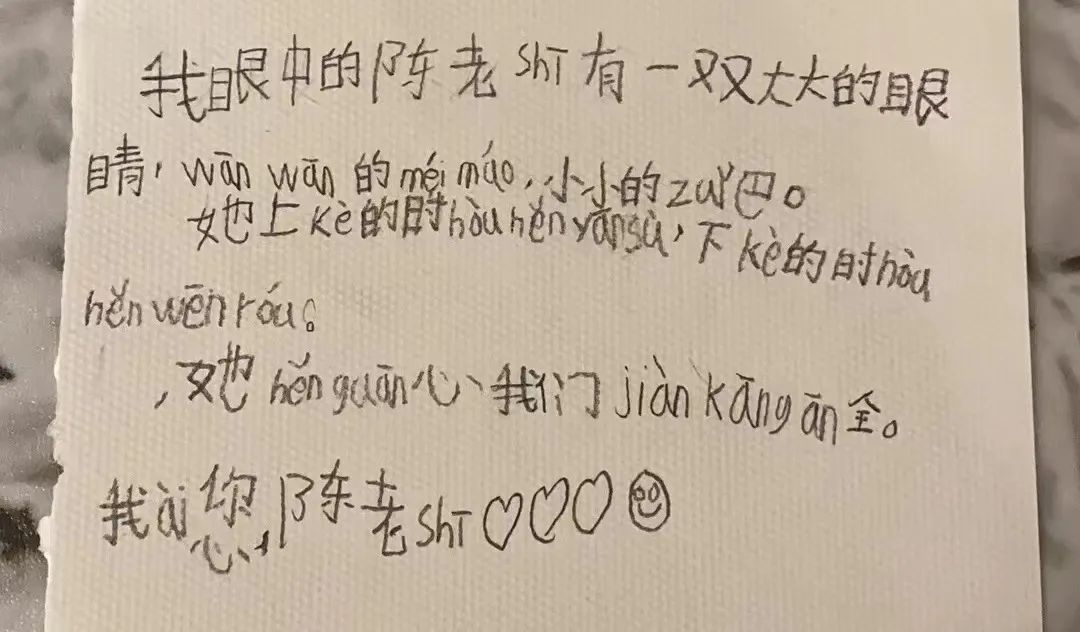 我眼中的陈老shī有一双大大的眼
睛，wān wān的méi máo，小小的zuǐ巴。
她上kè的时hòu hěn yánsù，下kè的时hòu
hěn wēn róu。
，她hěn guān心、我们jiàn kāng ān全。
我ài您，陈老shī♡♡♡☺